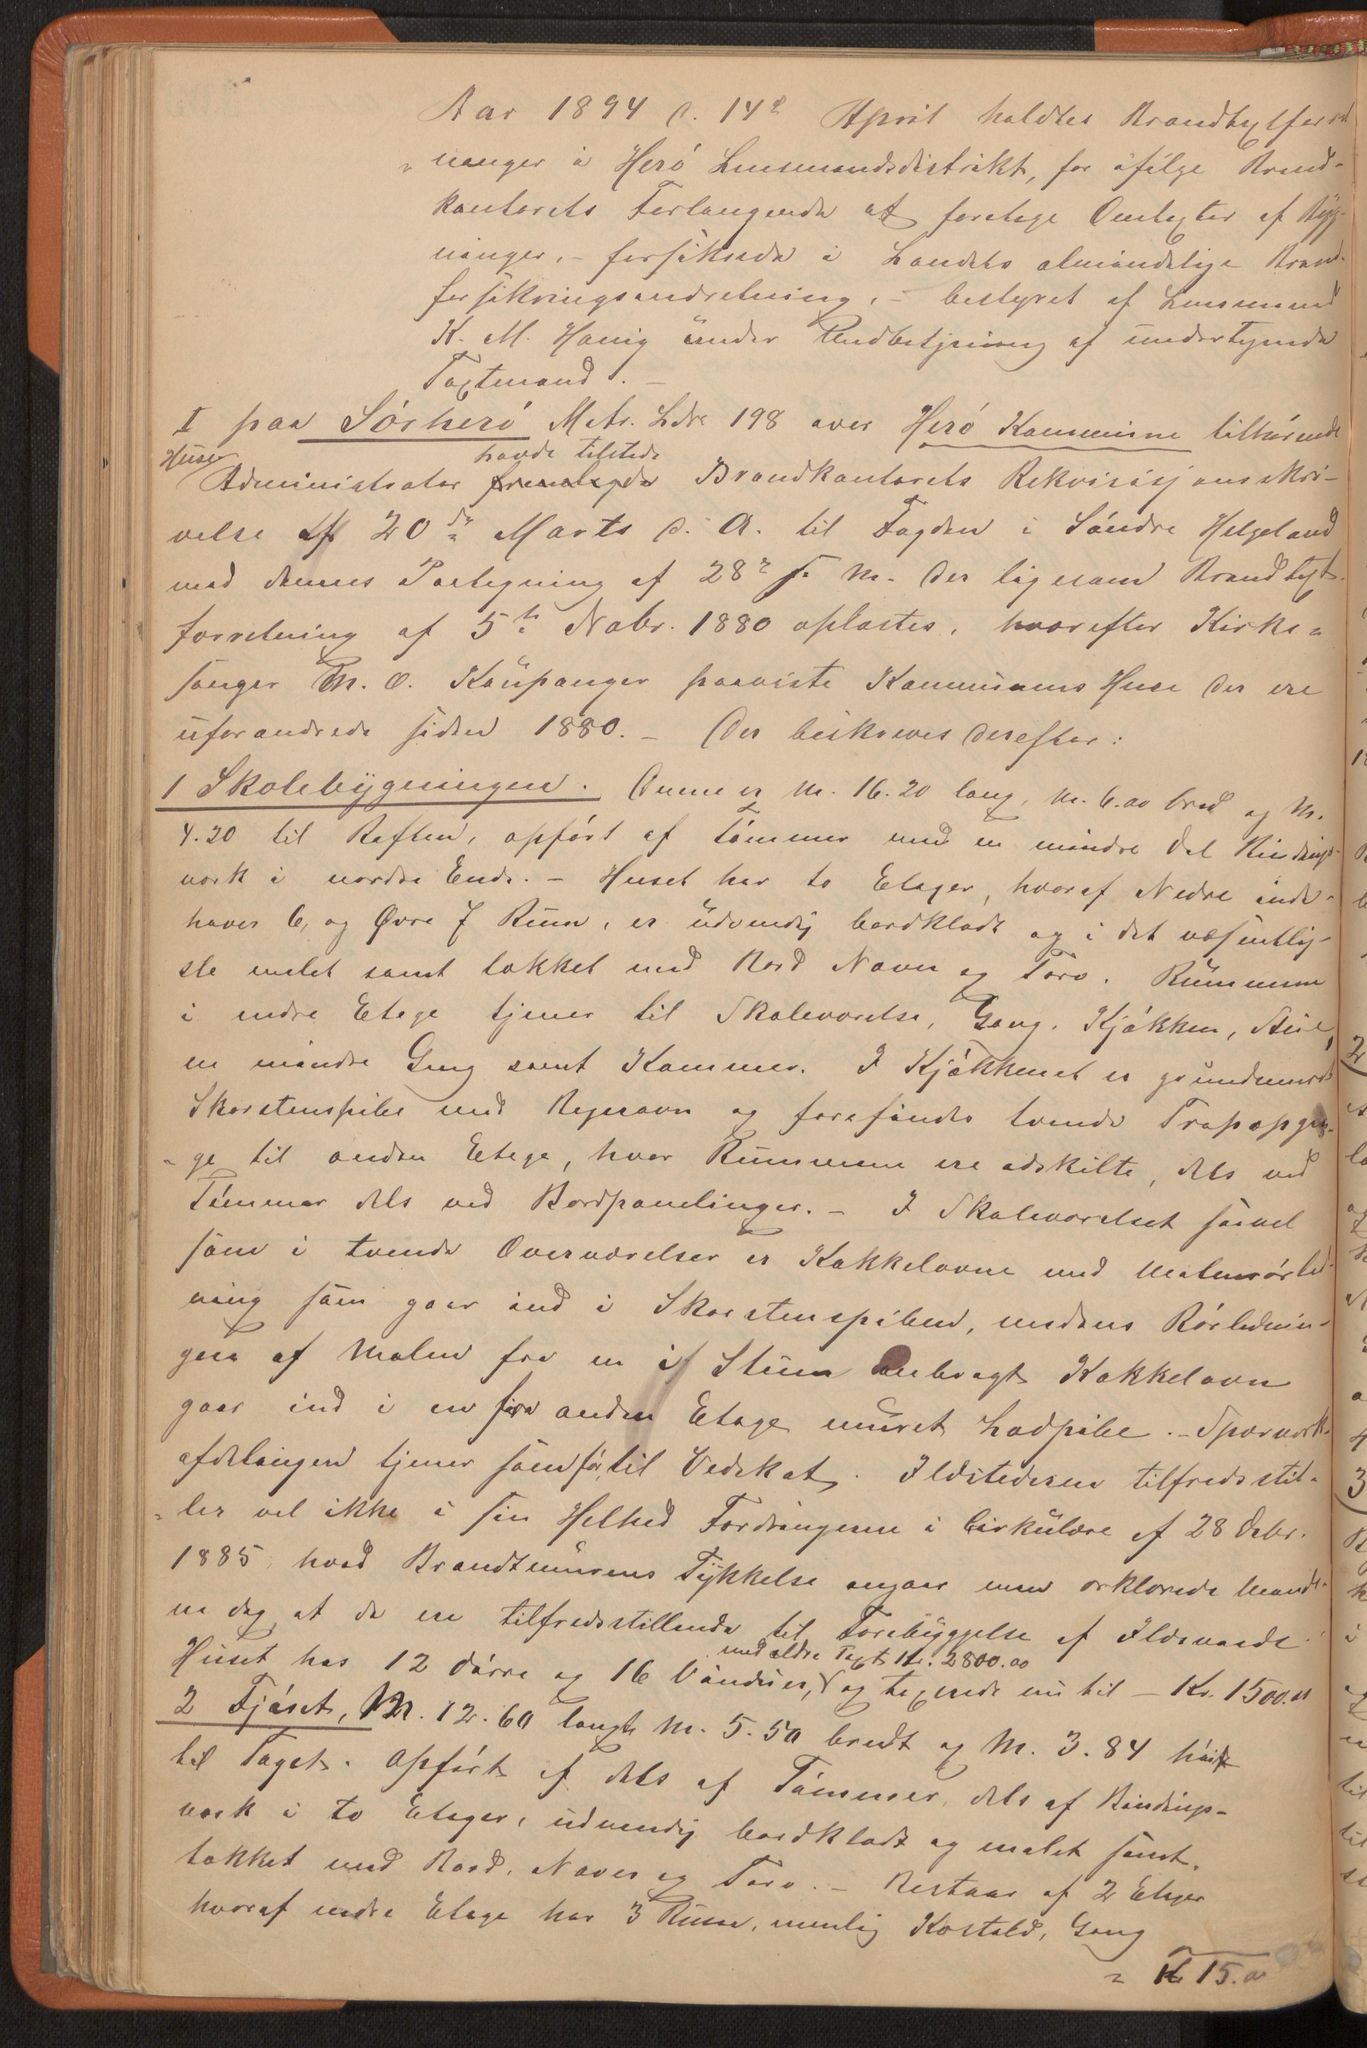 Aar 1894 d. 14de April holdtes Brandtaxtforret
"ninger i Herö Lensmandsdistrikt, for ifölge Brand-
kontorets Forlangende at foretage Omtaxter af Byg-
ninger, - forsikrede i Landets almindelige Brand-
forsikringsindretning, - bestyret af Lensmand
K. M. Havig under Undbetjening af undertegnede
Taxtmænd. -
I paa Sörherö Matr. Ldn 198 over Herö Kommune tilhörende
Huse havde tilstede
Administrator fremlagde Brandkontorets Rekvisisjonsskri-
velse af 20de Marts d. A. til Fogden i Söndre Helgeland
med dennes Paategning af 28de s. M. der ligesom Brandtaxt-
forretning af 5te Nobr. 1880 oplæstes, hvorefter Kirke=
sanger M. O. Kaupanger paaviste Kommunens Huse der ere
uforandrede siden 1880. - Der beskreves derefter:
1 Skolebygningen. Denne er M. 16.20 lang, M. 6.00 bred og M.
4.20 til Raften, opfört af Tömmer med en mindre Del Bindings
værk i nordre Ende. - Huset har to Etager, hvoraf Nedre inde-
haver 6, og Øvre 7 Rum, er udvendig bordklædt og i det væsentlig-
ste malet samt tækket med Bord Næver og Torv. Rummene
i nedre Etage tjener til Skoleværelse, Gang, Kjökken, Stue,
en mindre Gang samt Kammer. I Kjökkenet er grundmuret
Skorstenspibe med Bageravn og forefindes tvende Trapopgan-
"ge til anden Etage, hvor Rummene ere adskilte, dels ved
Tömmer dels ved Bordpanelinger. - I Skoleværelset saavel
som i tvende Overværelser er Kakkelovne med Malmrörled-
ning som gaar ind i Skorstenspiben, medens Rörlednin-
gen af Malm fra en i Stuen anbragt Kakkelovn
gaar ind i en fra anden Etage muret Lodpibe. - Sperværk-
afdelingen tjener som för til Vedskot. Ildstederne tilfredsstil-
"ler vel ikke i sin Helhed Fordringerne i Cirkulære af 28 Debr.
1885, hvad Brandmurens Tykkelse angaar men erklærede Mænde-
ne dog at de ere tilfredsstillende til Forebyggelse af Ildsvaade.
med ældre Taxt Kr. 2800.00
Huset har 12 Dörre og 16 Vinduer, og taxerede nu til - Kr. 1500.00
2 Fjöset, M. 12.60 langt M. 5.50 bredt og M. 3.84 höit
til Taget. Opfört af dels af Tömmer, dels af Bindings-
værk i to Etager, udvendig bordklædt og malet samt
tækket med Bord, Næver og Torv. - Bestaar af 2 Etager
hvoraf nedre Etage har 3 Rum, nemlig Kostald, Gang
= Kr 15.00